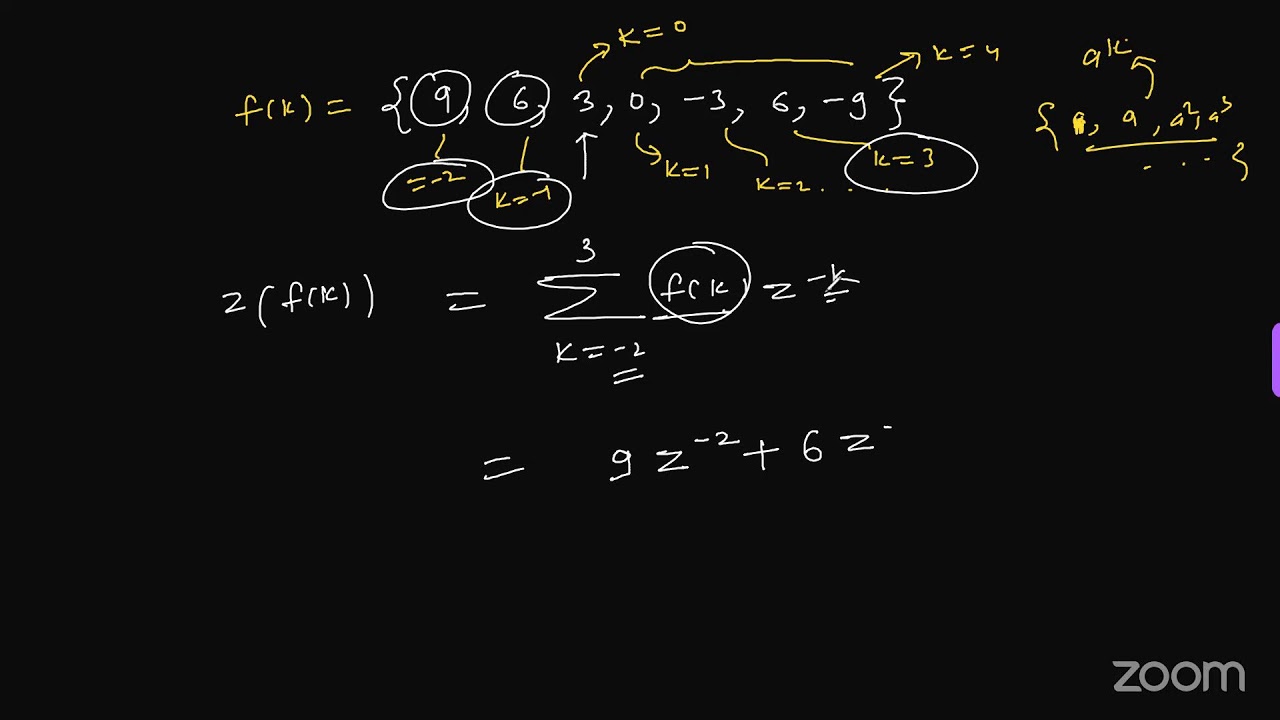 k = 0
k = 4
a^k
f(k) = {9, 6, 3, 0, -3, 6, -9}
{ , a, a², a³
... }
= -2 k = -1 k = 1 k = 2 . . . k = 3
3
z(f(k)) = Σ f(k) z^-k
k = -2
= 9 z^-2 + 6 z^-
zoom